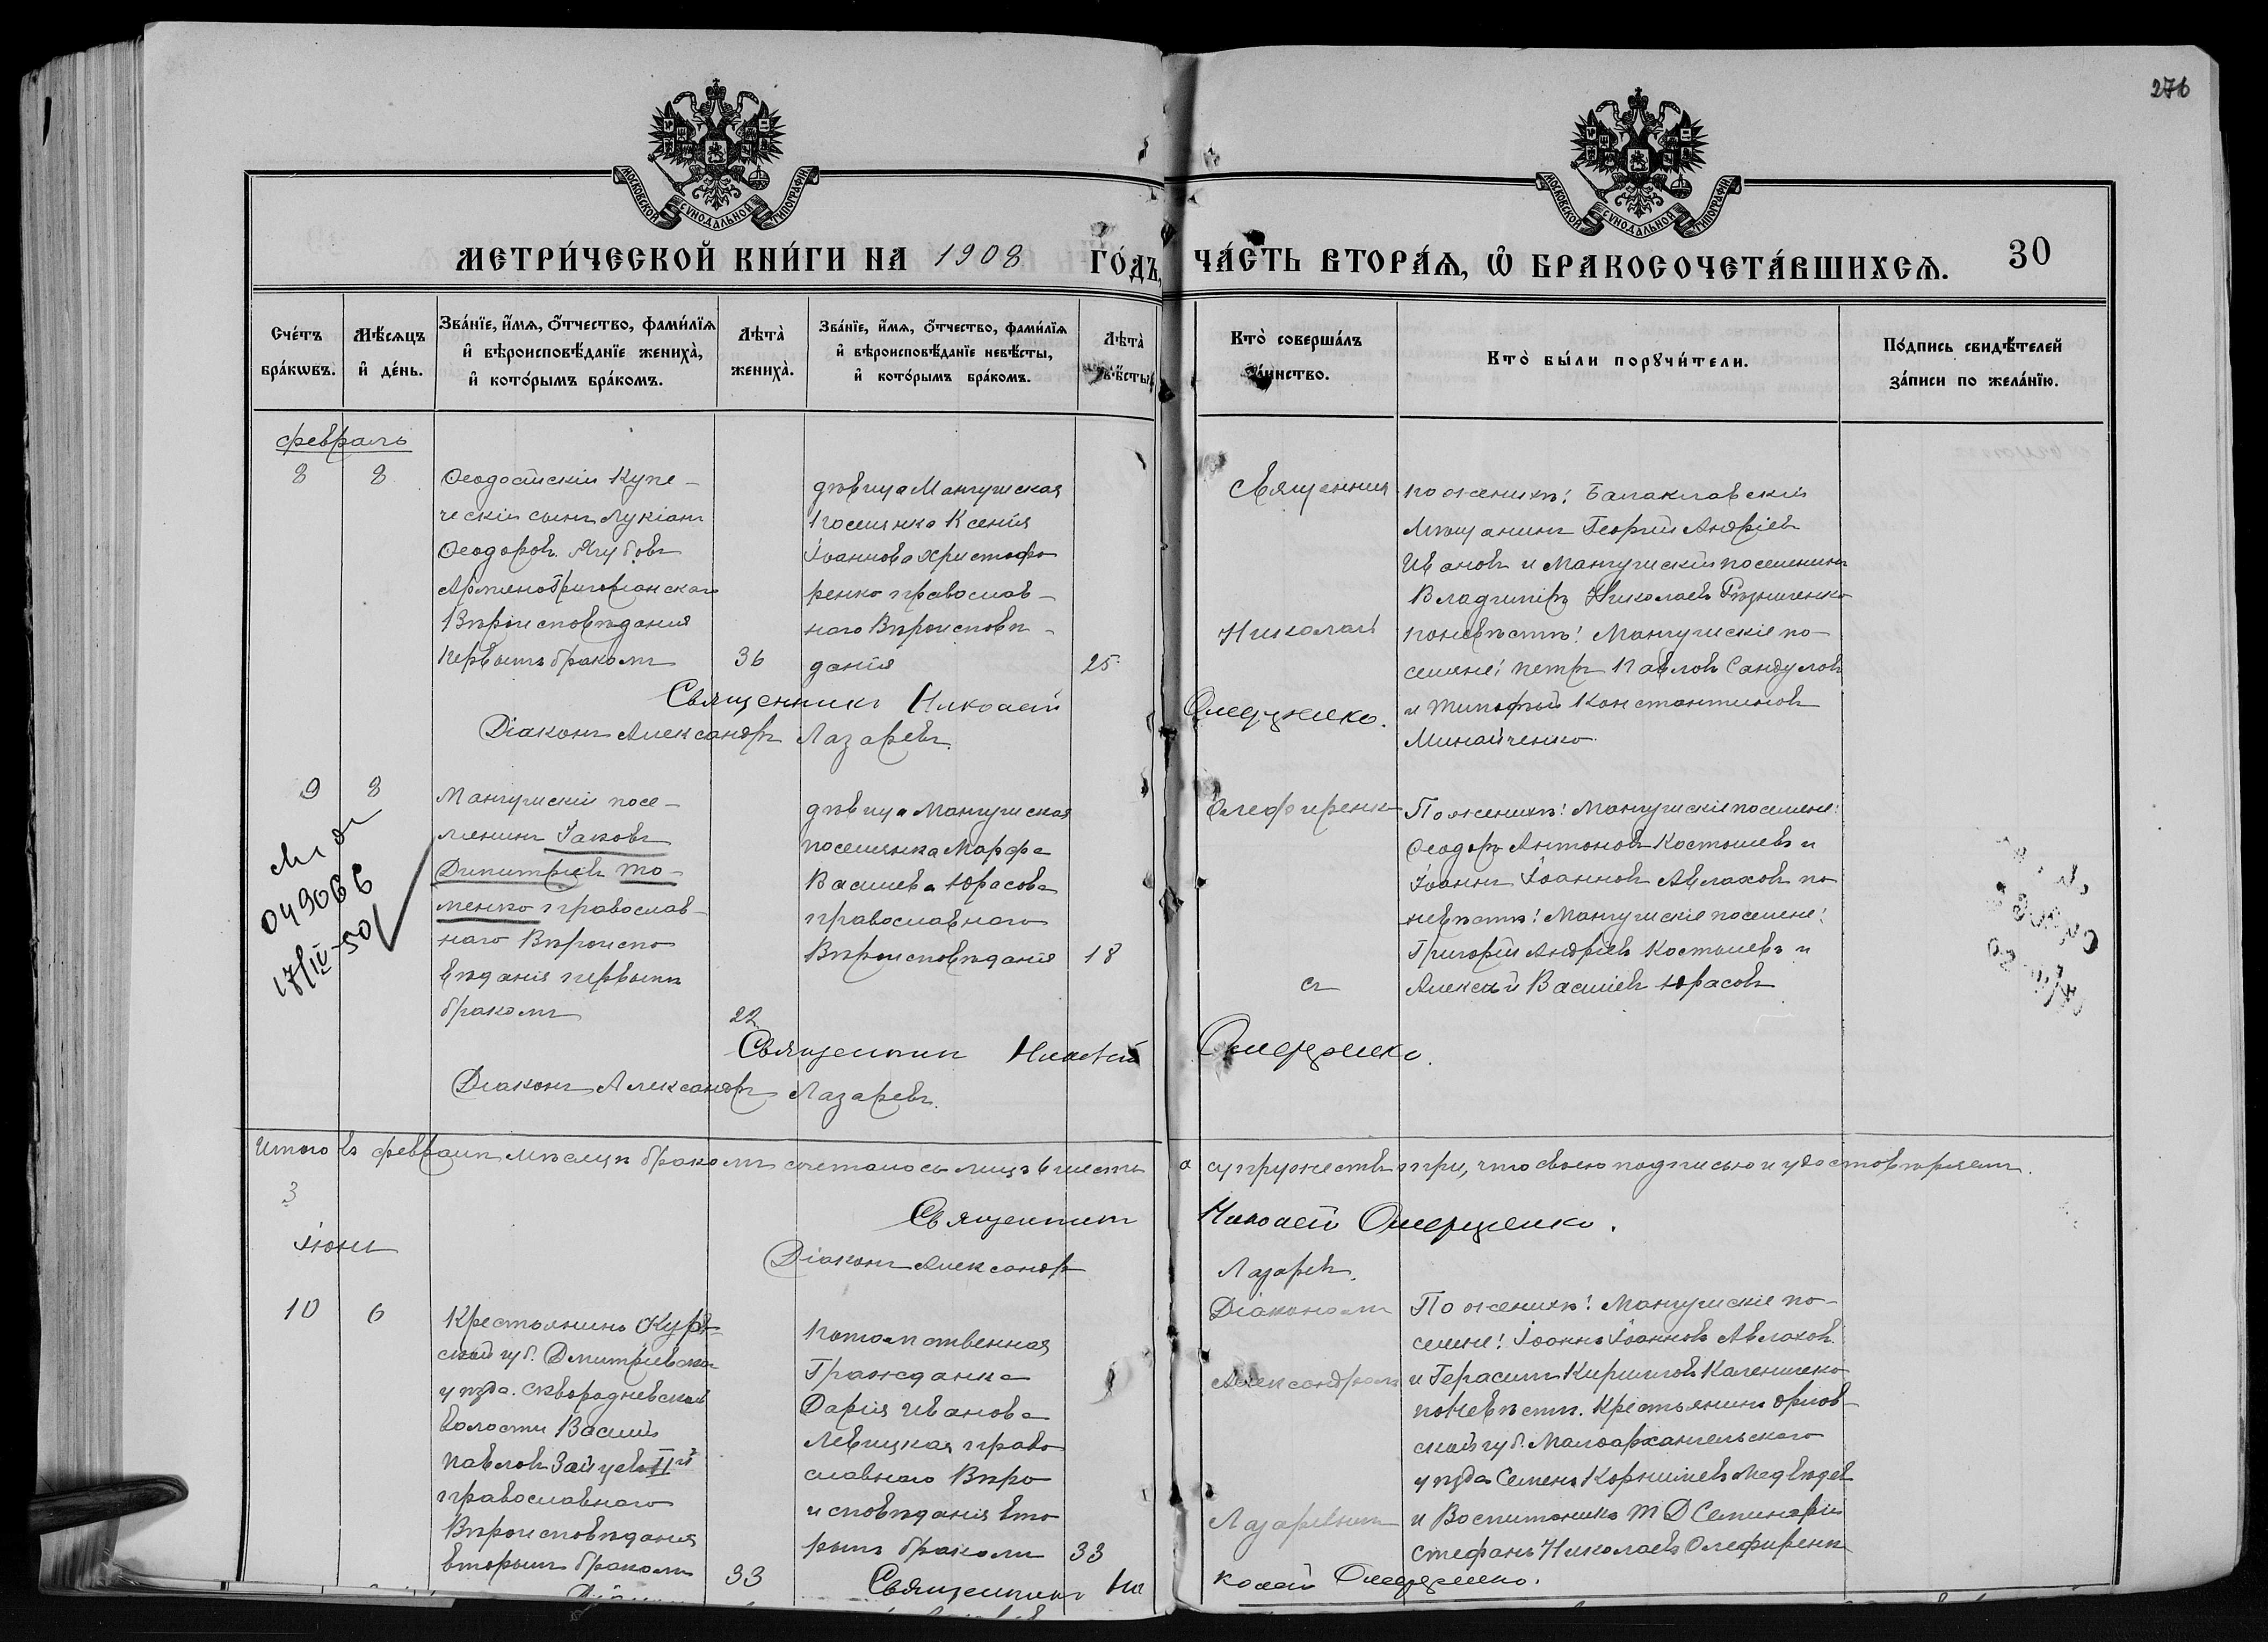 276
МОСКОВСКОЙ СѴНОДАЛЬНОЙ ТИПОГРАФІИ
МОСКОВСКОЙ СѴНОДАЛЬНОЙ ТИПОГРАФІИ
МЕТРИ́ЧЕСКОЙ КНИ́ГИ НА 1908 ГО́ДЪ, ЧА́СТЬ ВТОРА́Ѧ, Ѡ҆ БРАКОСОЧЕТА́ВШИХСѦ. 30
Сче́тъ
бра́кѡвъ.
Мѣ́сѧцъ
и҆ де́нь.
Зва́нїе, и҆́мѧ, ѻ҆́тчество, фами́лїѧ
и҆ вѣроисповѣ́данїе жениха̀,
и҆ кото́рымъ бра́комъ.
Лѣта̀
жениха̀.
Зва́нїе, и҆́мѧ, ѻ҆́тчество, фами́лїѧ
и҆ вѣроисповѣ́данїе невѣ́сты,
и҆ кото́рымъ бра́комъ.
Лѣта̀
невѣ́сты.
Кто̀ соверша́лъ
та́инство.
Кто̀ бы́ли порꙋчи́тели.
По́дпись свидѣ́телей
за́писи по жела́нїю.
февраль
8
8
Ѳеодосійскій Купе-
ческій сынъ Лукіанъ
Ѳеодоровъ Ягубовъ
Армяногригоріанскаго
Вѣроисповѣданія
первымъ бракомъ
36
дѣвица Мангушская
поселянка Ксенія
Іоаннова Христофо
ренко православ-
наго Вѣроисповѣ-
данія
25
Священник
Николай
по женихѣ: Балаклавскій
Мѣщанинъ Георгій Андріевъ
Ивановъ и Мангушскій поселянинъ
Владиміръ Николаевъ Рѣзниченко
по невѣстѣ: Мангушскіе по-
селяне: Петръ Павловъ Сандуловъ
и Тимофей Константиновъ
Минайченко.
Священникъ Николай Олефиренко.
Діаконъ Александръ Лазаревъ.
9
8
049066
17/IV-50
Мангушскій посе-
лянинъ Іаковъ
Димитріевъ То-
менко православ-
наго Вѣроиспо
вѣданія первымъ
бракомъ
22
дѣвица Мангушская
поселянка Марфа
Васильева Юрасова
православнаго
Вѣроисповѣданія
18
Олефиренко
По женихѣ: Мангушскіе поселяне:
Ѳеодоръ Антоновъ Костышевъ и
Іоаннъ Іоанновъ Авлаховъ по
невѣстѣ: Мангушскіе поселяне:
Григорій Андріевъ Костышевъ и
Алексѣй Васильевъ Юрасовъ
съ
Священникъ Николай Олефиренко.
Діаконъ Александръ Лазаревъ.
Итого въ февралѣ мѣсяцѣ бракомъ сочеталось лицъ 6 шесть а супружествъ три, что своею подписью и удостовѣряемъ.
3
Священникъ Николай Олефиренко.
Діаконъ Александръ Лазаревъ.
Іюнь
10
6
Крестьянинъ Кур-
ской губ. Дмитріевскаго
уѣзда. Сковородневской
волости Василій
Павловъ Зайцевъ IIй
православнаго
Вѣроисповѣданія
вторымъ бракомъ
33
потомственная
Гражданка
Дарія Иванова
Левицкая право
славнаго Вѣро
исповѣданія вто
рымъ бракомъ
33
Діакономъ
Александромъ
Лазаревымъ
По женихѣ: Мангушскіе по-
селяне: Іоаннъ Іоанновъ Авлаховъ
и Герасимъ Кирилловъ Калениченко
по невѣстѣ. Крестьянинъ Орлов-
ской губ. Малоархангельскаго
уѣзда Семенъ Корниліевъ Медвѣдевъ
и Воспитанникъ Т Д Семинаріи
Стефанъ Николаевъ Олефиренко
Священникъ Николай Олефиренко.